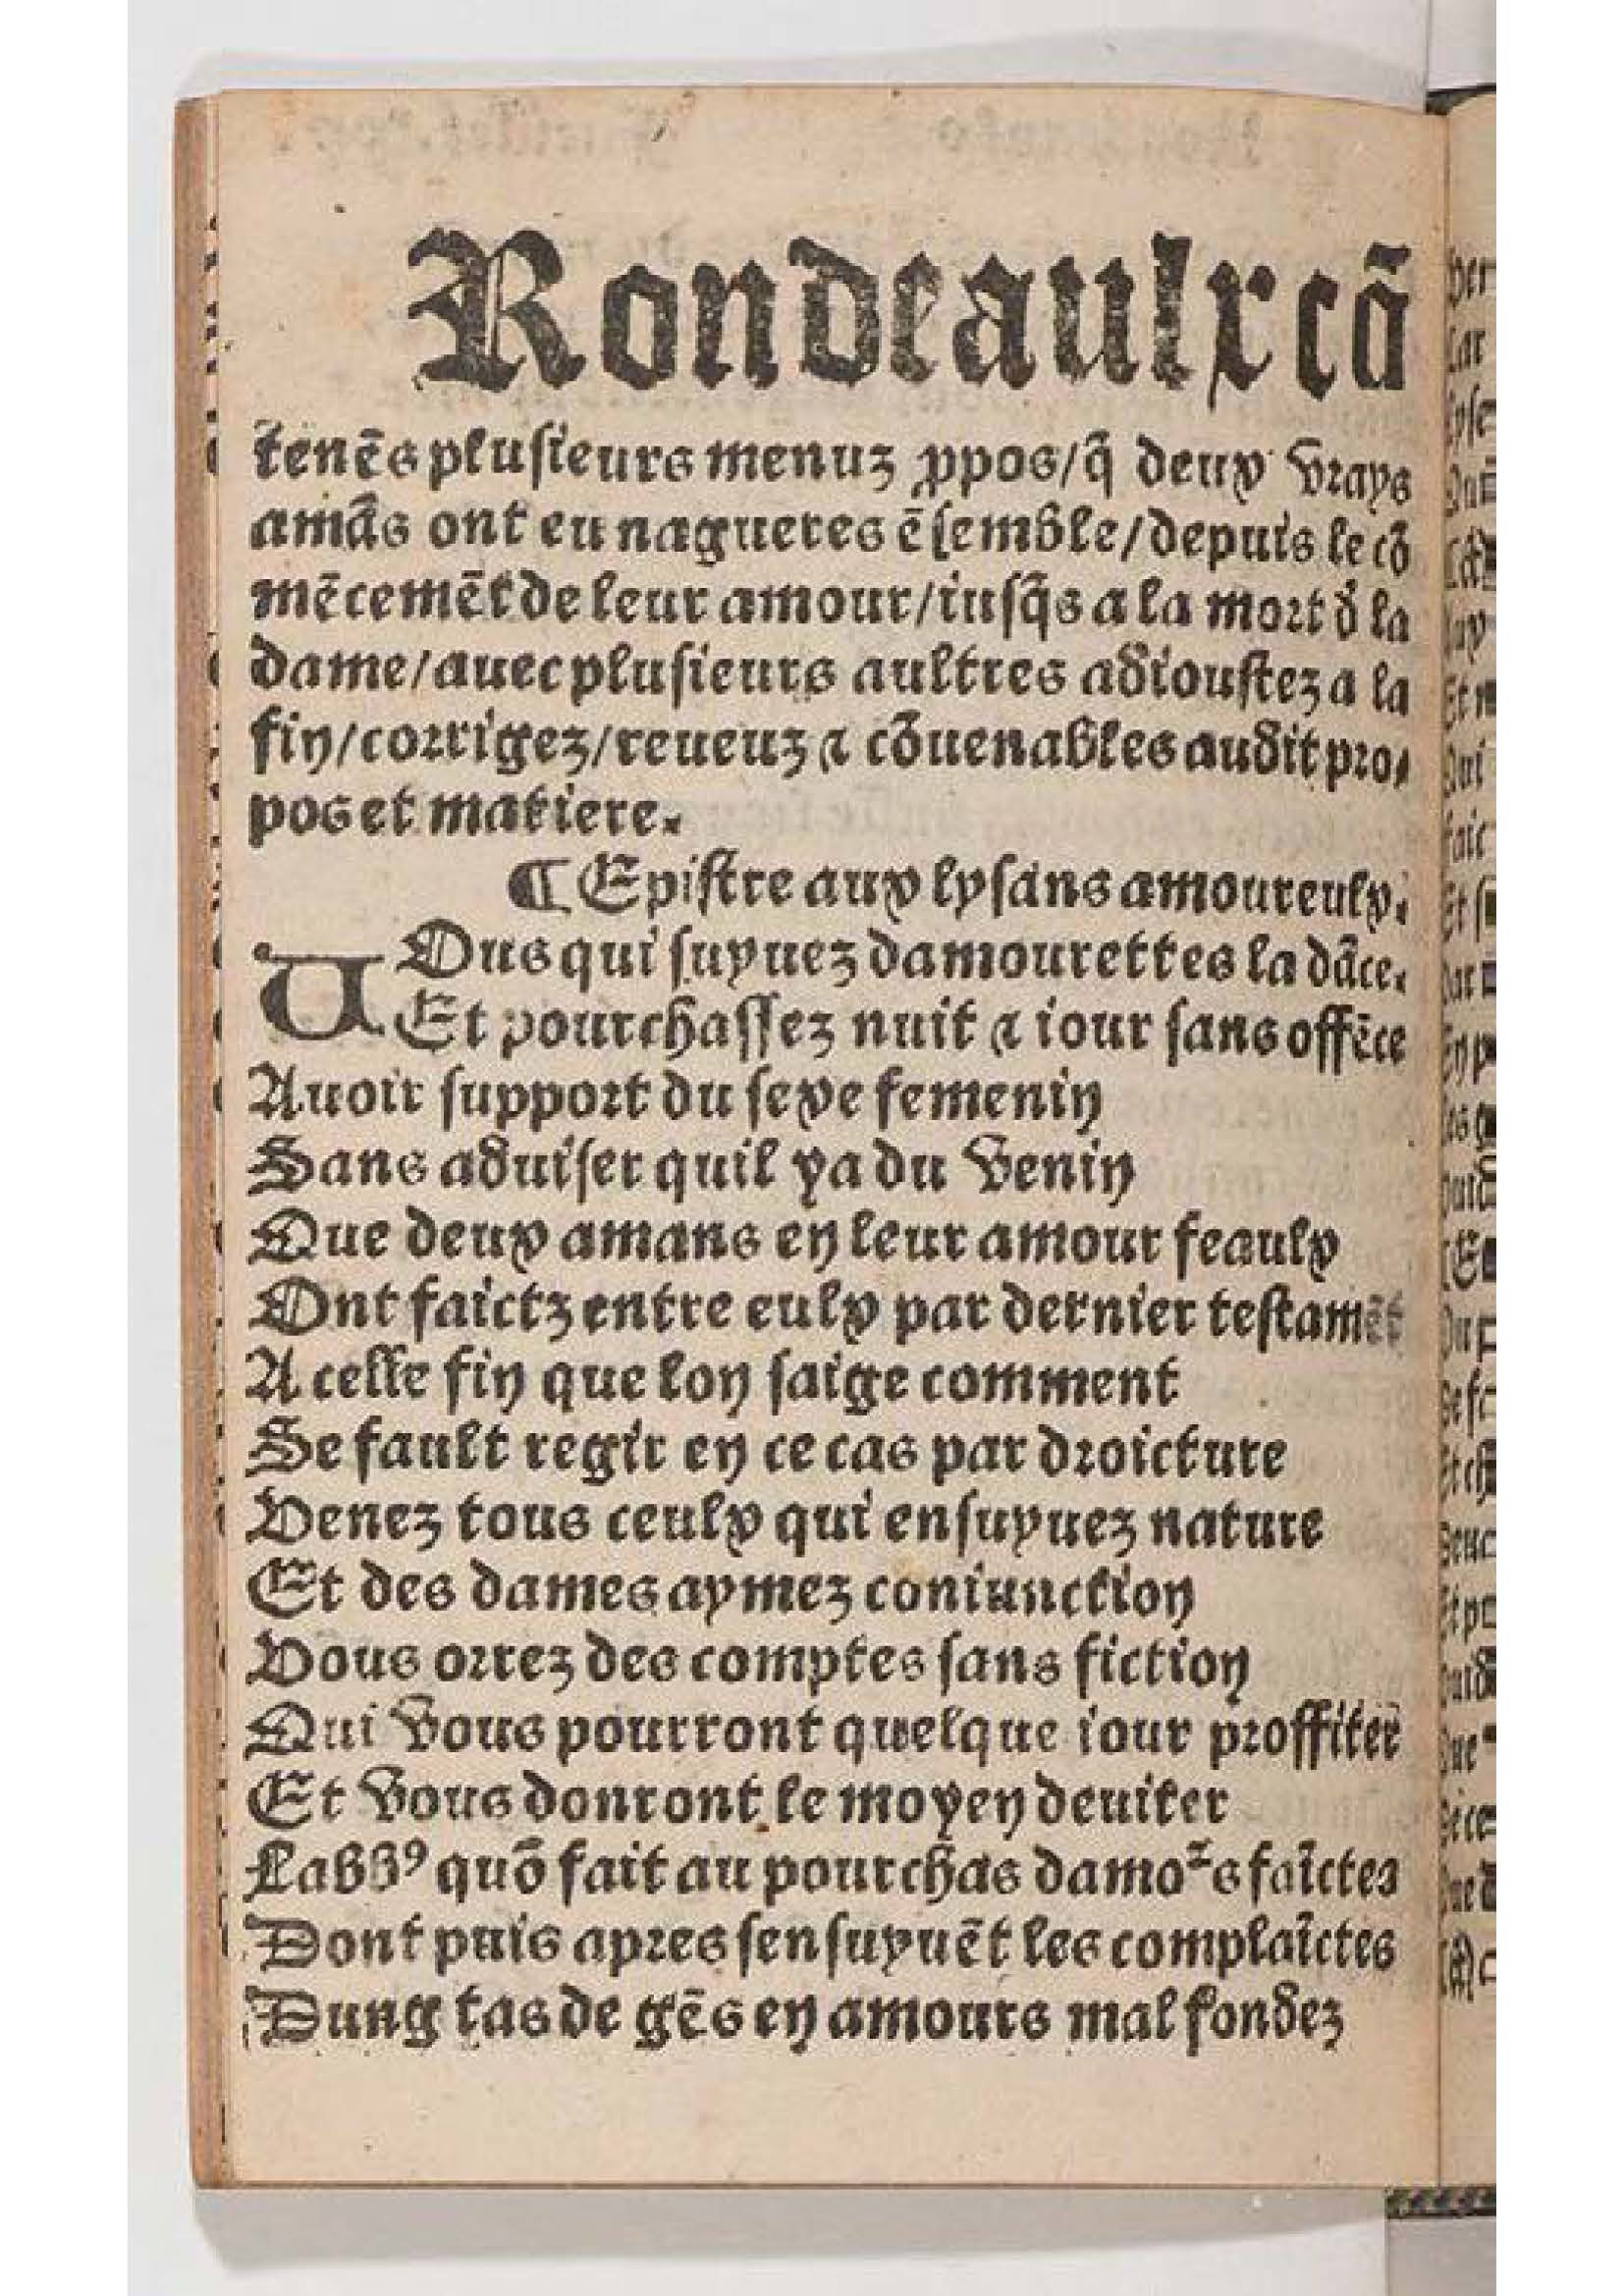 Rondeaulx cõ
tenẽs plusieurs menuz ꝓpos/q̃ deux vrays
amãs ont eu nagueres ẽsemble/depuis le cõ
mẽcemẽt de leur amour/iusq̃s a la mort d̃ la
dame/auec plusieurs aultres adioustez a la
fin/corrigez/reueuz ⁊ cõuenables audit pro/
pos et matiere.
¶ Epistre aux lysans amoureulx.
VOus qui suyuez damourettes la dãce.
Et pourchassez nuit ⁊ iour sans offẽce
Auoir support du sexe femenin
Sans aduiser quil ya du venin
Que deux amans en leur amour feaulx
Ont faictz entre eulx par dernier testamẽt
A celle fin que lon saige comment
Se fault regir en ce cas par droicture
Venez tous ceulx qui ensuyuez nature
Et des dames aymez coniunction
Vous orrez des comptes sans fiction
Qui vous pourront quelque iour proffiter
Et vous donront le moyen deuiter
Labbꝰ quõ fait au pourchas damoᷣs faĩctes
Dont puis apres sensuyuẽt les complaĩctes
Dung tas de gẽs en amours mal fondez